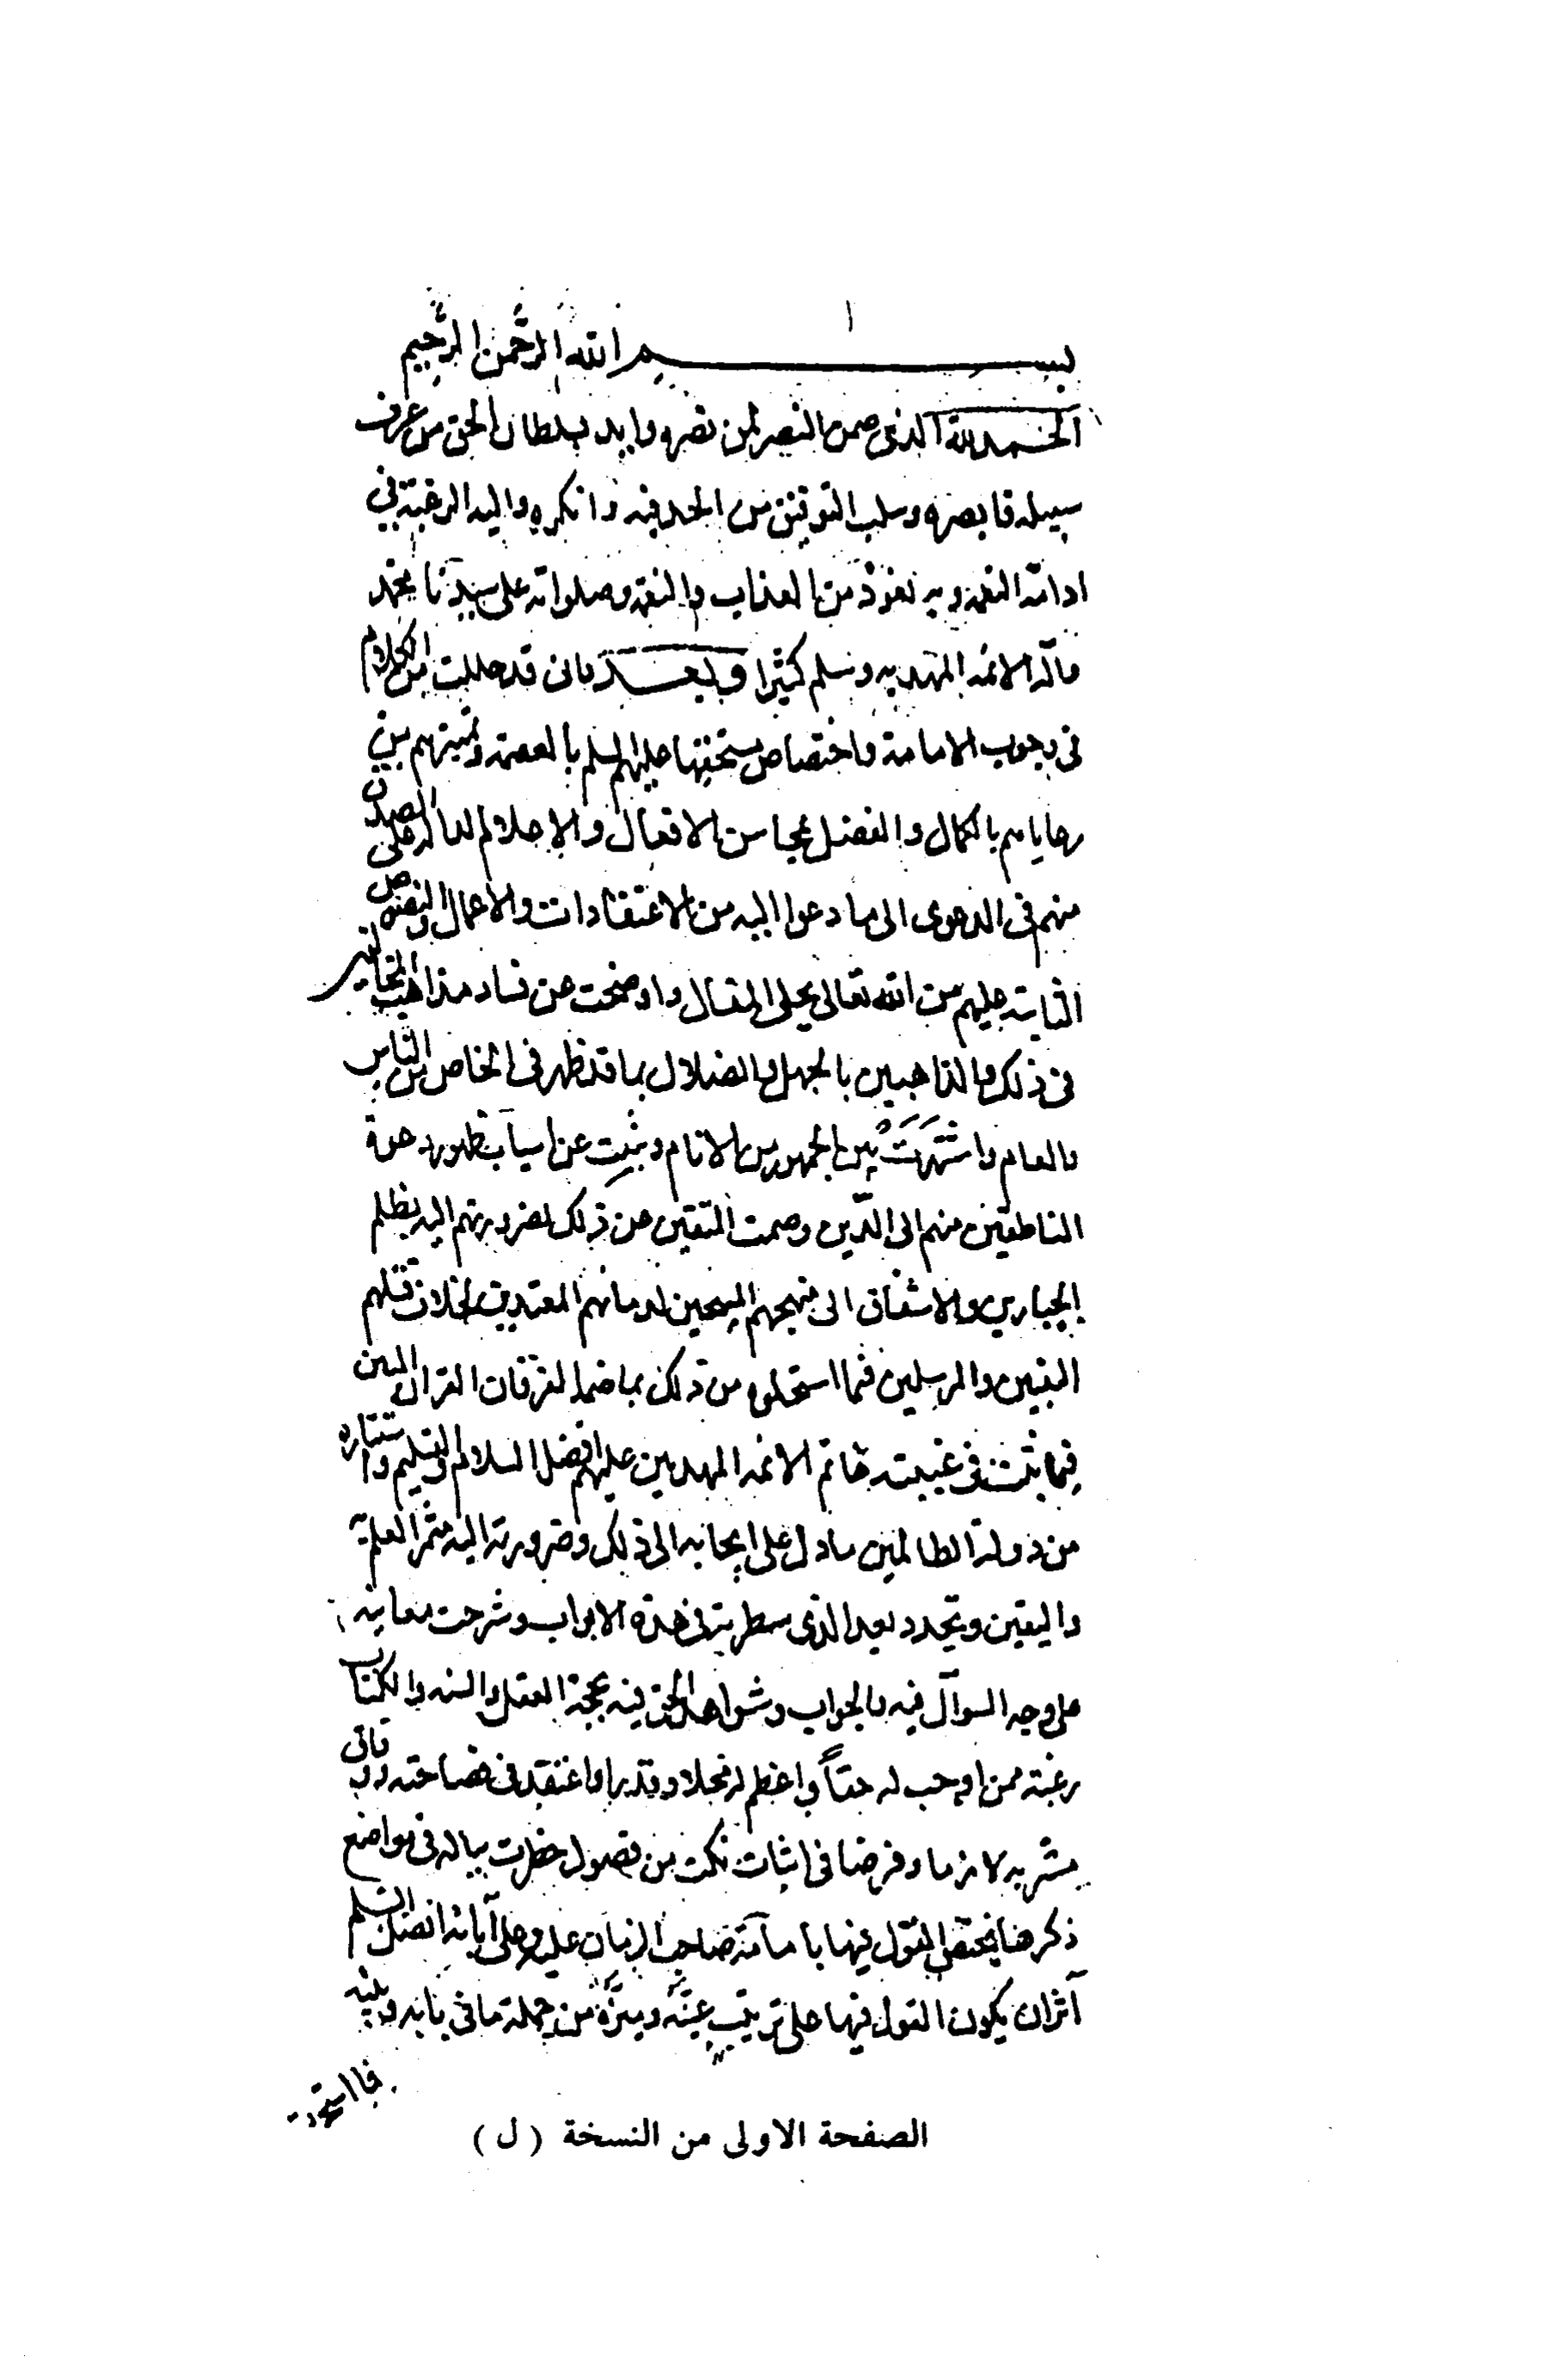 ١
بسم الله الرحمن الرحيم
الحمد لله الذى ضمن النصر لمن نصره وايد بسلطان الحق من عرف
سبيله فابصره وسلب التوفيق من الحد فيه وانكره واليه الرغبة في
ادامة النعمه وبه نعوذ من العذاب والنقمه وصلواته على سيدنا محمد
وآله الائمه المهديه وسلم كثيرا وبعد فانى قد حللت من الكلام
فى وجوب الامامة واختصاص مستحقيها عليهم السلم بالعصمه وتميزهم بين
رعاياهم بالكمال والفضل بمحاسن الافعال والاعلام الداله على الصدق
منهم فى الدعوى الى ما دعوا اليه من الاعتقادات والاعمال والنصوص
الثابته عليهم من الله تعالى بجلى المقال واوضحت عن فساد مذاهب المخالفين
فى ذلك والذاهبين بالجهل والضلال بما قد ظهر فى الخاص من الناس
والعام واشتهرت بين الجمهور من الانام وبينت عن اسباب ظهور دعوة
الناطقين منهم الى الدّين وصمت المتقين عن ذلك لضرورتهم اليه بظلم
الجبارين والاشفاق الى منهجهم المبيحين لدمائهم المعتدين لخلاف قتلهم
النبيين والمرسلين فيما استحلوه من ذلك بما ضمنه الفرقان القرآن المبين
فيما ثبت فى غيبته خاتم الائمه المهديين عليهم افضل السلام والتسليم واستتاره
من دولة الظالمين ما دل على ايجابه الى ذلك وضرورته اليه مثمر العلم به
واليقين وتجدد بعد الذى سطرته فى هذه الابواب وشرحت معانيه
على وجه السوآل فيه والجواب وشواهد الحق فيه بحجة العقل والسنه والكتاب
رغبته ممن اوجب له حقاً واعظم له محلا وقدرا واعتقد فى قضاء حقه ووفاق
مشربه لازما وفرضا فى اثبات نكت من فصول خطرت بباله فى مواضع
ذكرها يختص القول فيها بامامة صاحب الزمان عليه وعلى آبائه افضل السلم
آثر ان يكون القول فيها على ترتيب عيّنه وميزه من جملة ما فى بابه وبينه
فااستخرت
الصفحة الاولى من النسخة (ل)